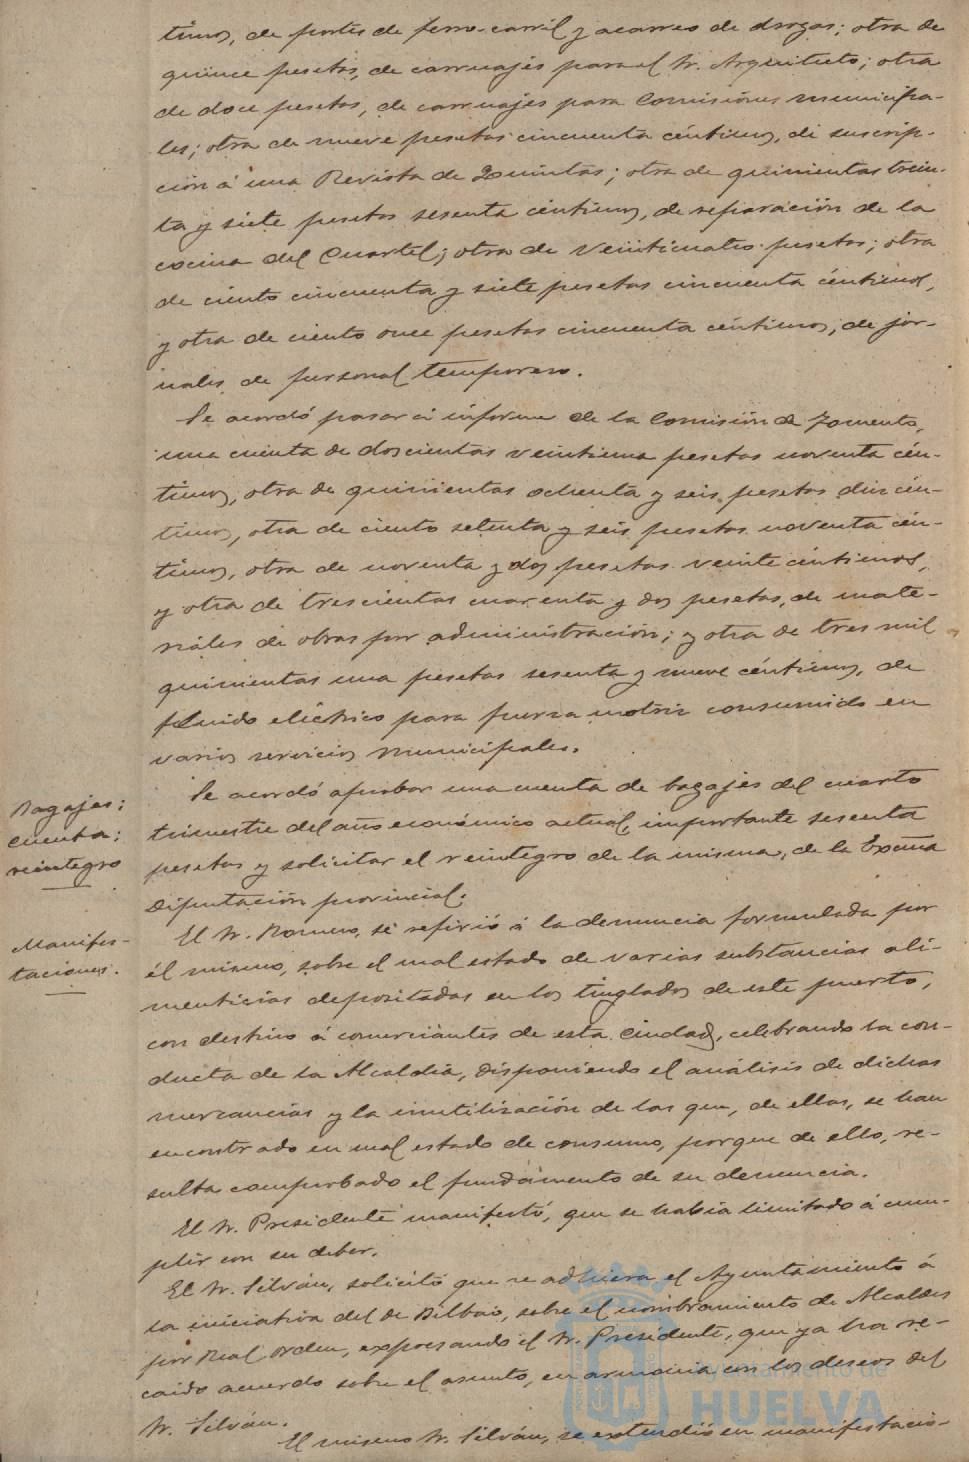 timos, de portes de ferro-carril y acarreo de drogas; otra de
quince pesetas, de carruajes para el Sr. Arquitecto; otra
de doce pesetas, de carruajes para Comisiones municipa-
les; otra de nueve pesetas cincuenta céntimos, de suscrip-
ción á una Revista de Quintas; otra de quinientas trein-
ta y siete pesetas sesenta céntimos, de reparación de la
cocina del Cuartel; otra de veinticuatro pesetas; otra
de ciento cincuenta y siete pesetas cincuenta céntimos,
y otra de ciento once pesetas cincuenta céntimos, de jor-
nales de personal temporero.
Se acordó pasar á informe de la Comisión de Fomento,
una cuenta de doscientas veintiuna pesetas noventa cén-
timos, otra de quinientas ochenta y seis pesetas diez cén-
timos, otra de ciento setenta y seis pesetas noventa cén-
timos, otra de noventa y dos pesetas veinte céntimos,
y otra de trescientas cuarenta y dos pesetas, de mate-
riales de obras por administración; y otra de tres mil
quinientas una pesetas sesenta y nueve céntimos, de
fluido eléctrico para fuerza motriz consumido en
varios servicios municipales.
Bagajes;
cuenta;
reintegro
Se acordó aprobar una cuenta de bagajes del cuarto
trimestre del año económico actual, importante sesenta
pesetas y solicitar el reintegro de la misma, de la Excma
Diputación provincial.
Manifes-
taciones.
El Sr. Romero, se refirió á la denuncia formulada por
él mismo, sobre el mal estado de varias substancias ali-
menticias depositadas en los tinglados de este puerto,
con destino á comerciantes de esta Ciudad, celebrando la con-
ducta de la Alcaldía, disponiendo el análisis de dichas
mercancías y la inutilización de las que, de ellas, se han
encontrado en mal estado de consumo, porque de ello, re-
sulta comprobado el fundamento de su denuncia.
El Sr. Presidente manifestó, que se había limitado á cum-
plir con su deber.
El Sr. Silván, solicitó que se adhiera el Ayuntamiento á
la iniciativa del de Bilbao, sobre el nombramiento de Alcaldes
por Real orden, expresando el Sr. Presidente, que ya ha re-
caido acuerdo sobre el asunto, en armonía con los deseos del
Sr. Silván.
El mismo Sr. Silván, se extendió en manifestacio-
Ayuntamiento de
HUELVA